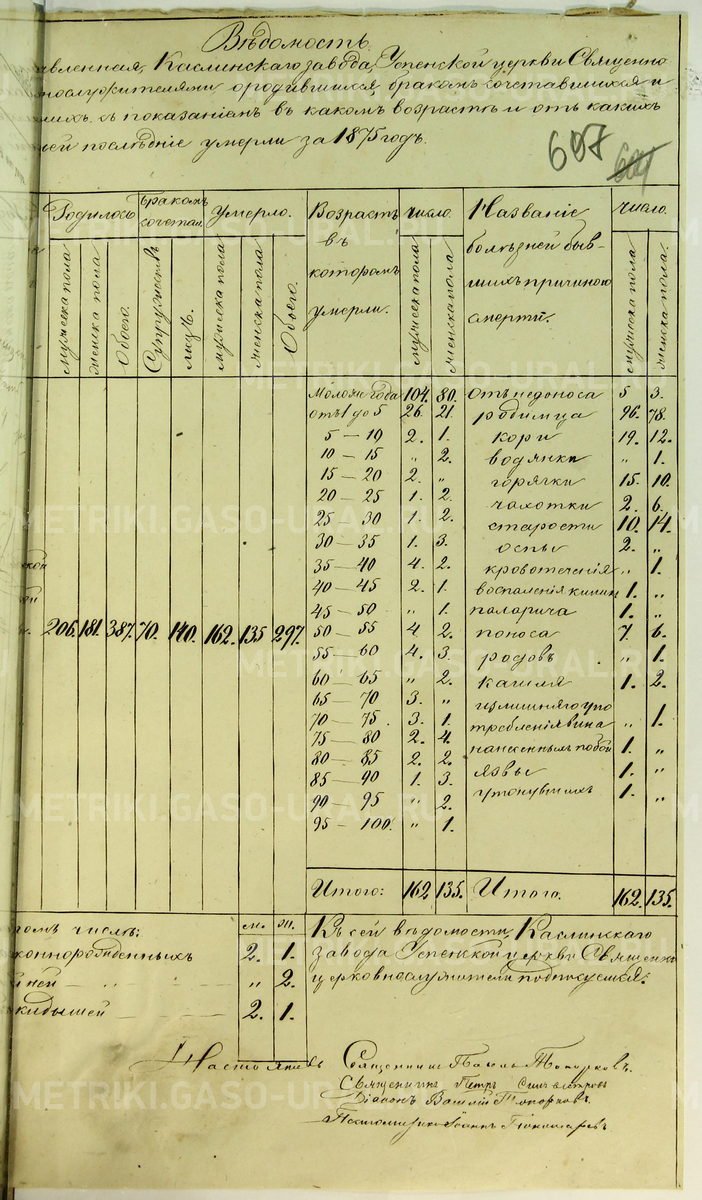 Вѣдомость
Каслинскаго завода, Успенской церкви Священно
о родившихся, бракомъ сочетавшихся и
съ показанiемъ въ какомъ возрастѣ и отъ какихъ
послѣднiе умерли за 1875 годъ.
607
Родилось
бракомъ сочетал.
Умерло.
Возрастъ въ которомъ умерли.
число.
Названiе болѣзней быв-
шихъ причиною смерти.
число.
мужеска пола
женска пола
Обоего.
Супружествъ
лицъ.
мужеска пола
женска пола
Обоего.
мужеска пола
женска пола
мужеска пола
женска пола.
206. 181. 387. 70. 140. 162. 135 297.
Моложе года 104. 80. Отъ недоноса 5 3.
отъ 1 до 5 26. 21. родимца 96. 78.
5 — 10 2. 1. кори 19. 12.
10 — 15 „ 2. водянки „ 1.
15 — 20 2. „ горячки 15. 10.
20 — 25 1. 2. чахотки 2. 6.
25 — 30 1. 2. старости 10. 14.
30 — 35 1. 3. оспы 2. „
35 — 40 4. 2. кровотеченiя „ 1.
40 — 45 2. 1. воспаленiя 1. „
45 — 50 „ 1. паларича 1. „
50 — 55 4 2. поноса 7. 6.
55 — 60 4. 3. родовъ „ 1.
60 — 65 „ 2. кашля 1. 2.
65 — 70 3. „ излишняго упо
70 — 75 3. 1. требленiя вина „ 1.
75 — 80 2. 4. побои 1. „
80 — 85 2. 2. язвы 1. „
85 — 90 1. 3. утонувшихъ 1. „
90 — 95 „ 2.
95 — 100. „ 1.
Итого: 162. 135. Итого. 162. 135.
томъ числѣ:
м. ж.
2. 1.
„ 2.
2. 1.
Къ сей вѣдомости, Каслинскаго
завода Успенской церкви Священно
церковнослужители подписуемся:
Настоятель Священникъ
Священникъ Петръ
Дiаконъ Василiй Топорковъ.
Псаломщикъ Iоаннъ
METRIKI.GASO-URAL.RU